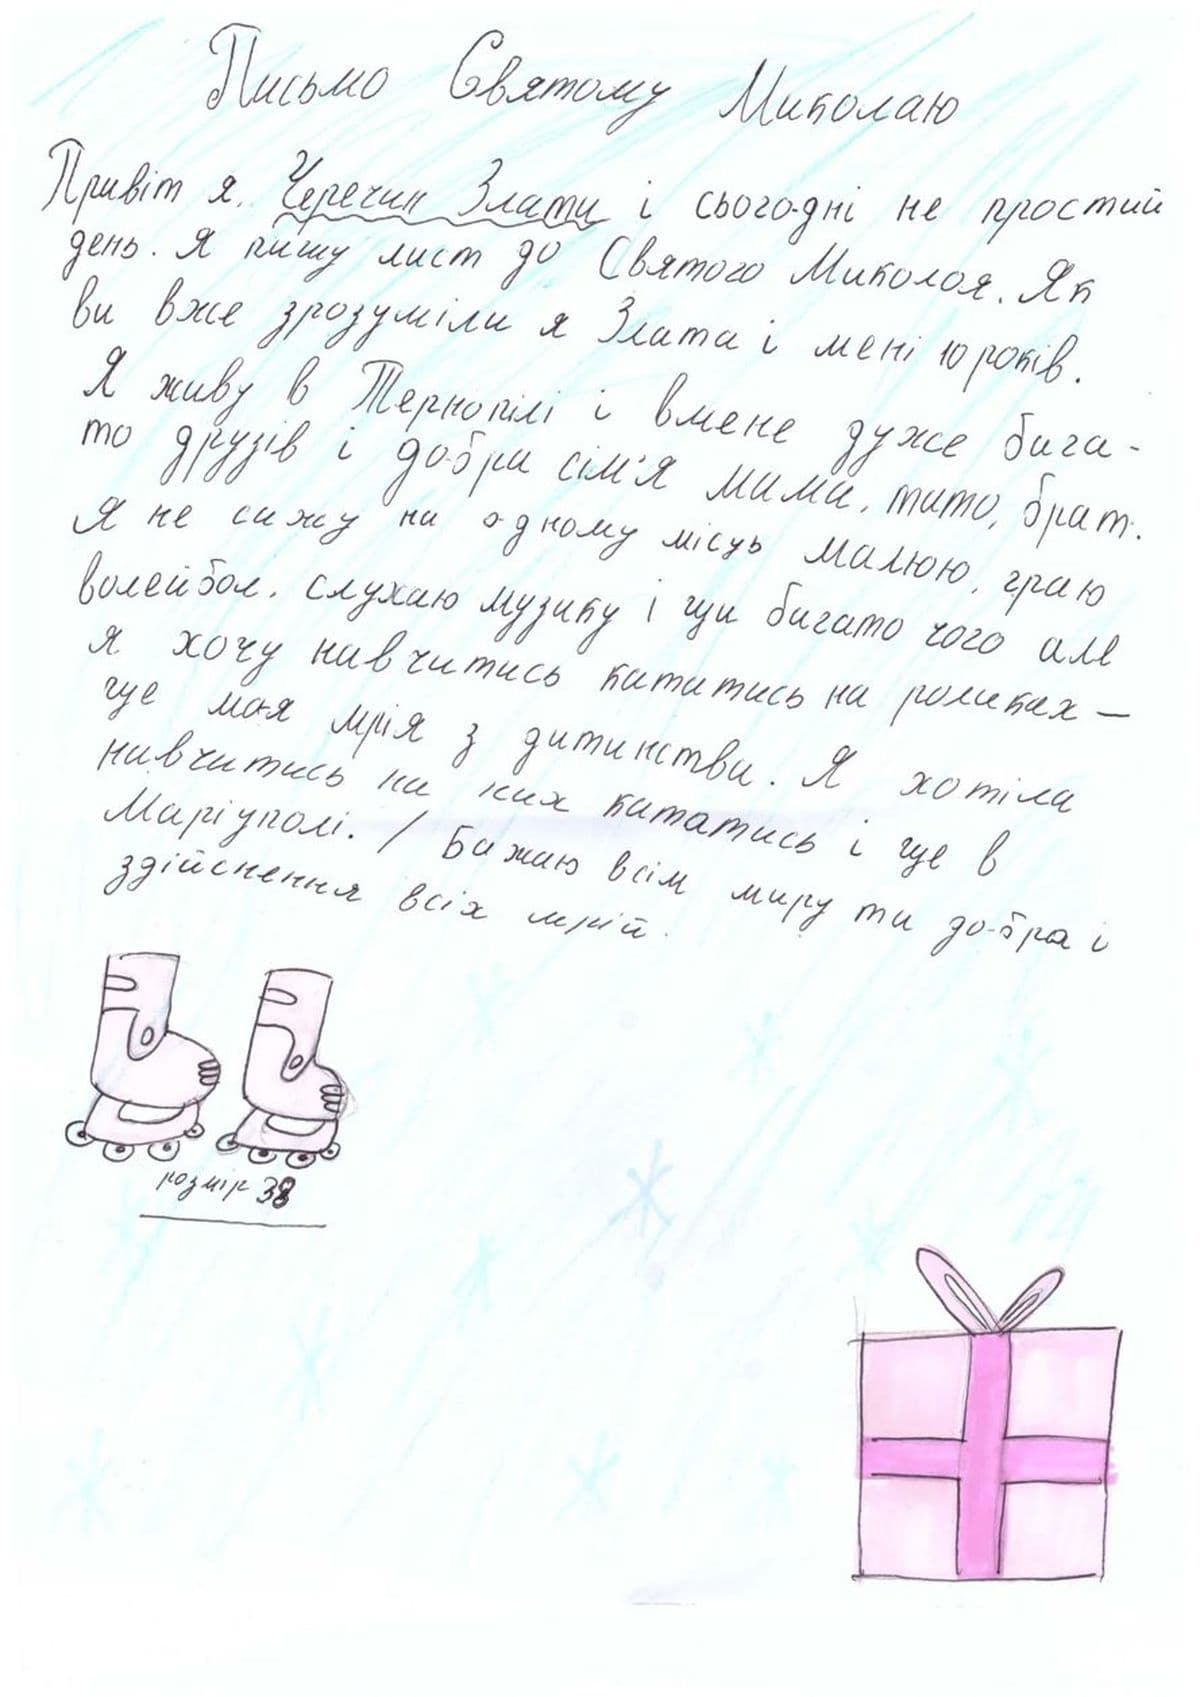 Письмо Святому Миколаю
Привіт я, Черечин Злата і сьогодні не простий
день. Я пишу лист до Святого Миколоя. Як
ви вже зрозуміли я Злата і мені 10 років.
Я живу в Тернопілі і вмене дуже бага-
то друзів і добра сім'я мама, тато, брат.
Я не сижу на одному місць малюю, граю
волейбол, слухаю музику і ще багато чого але
я хочу навчитись кататись на роликах –
це моя мрія з дитинства. Я хотіла
навчитись на них кататись і ще в
Маріуполі. / Бажаю всім миру та добра і
здійснення всіх мрій.
розмір 38